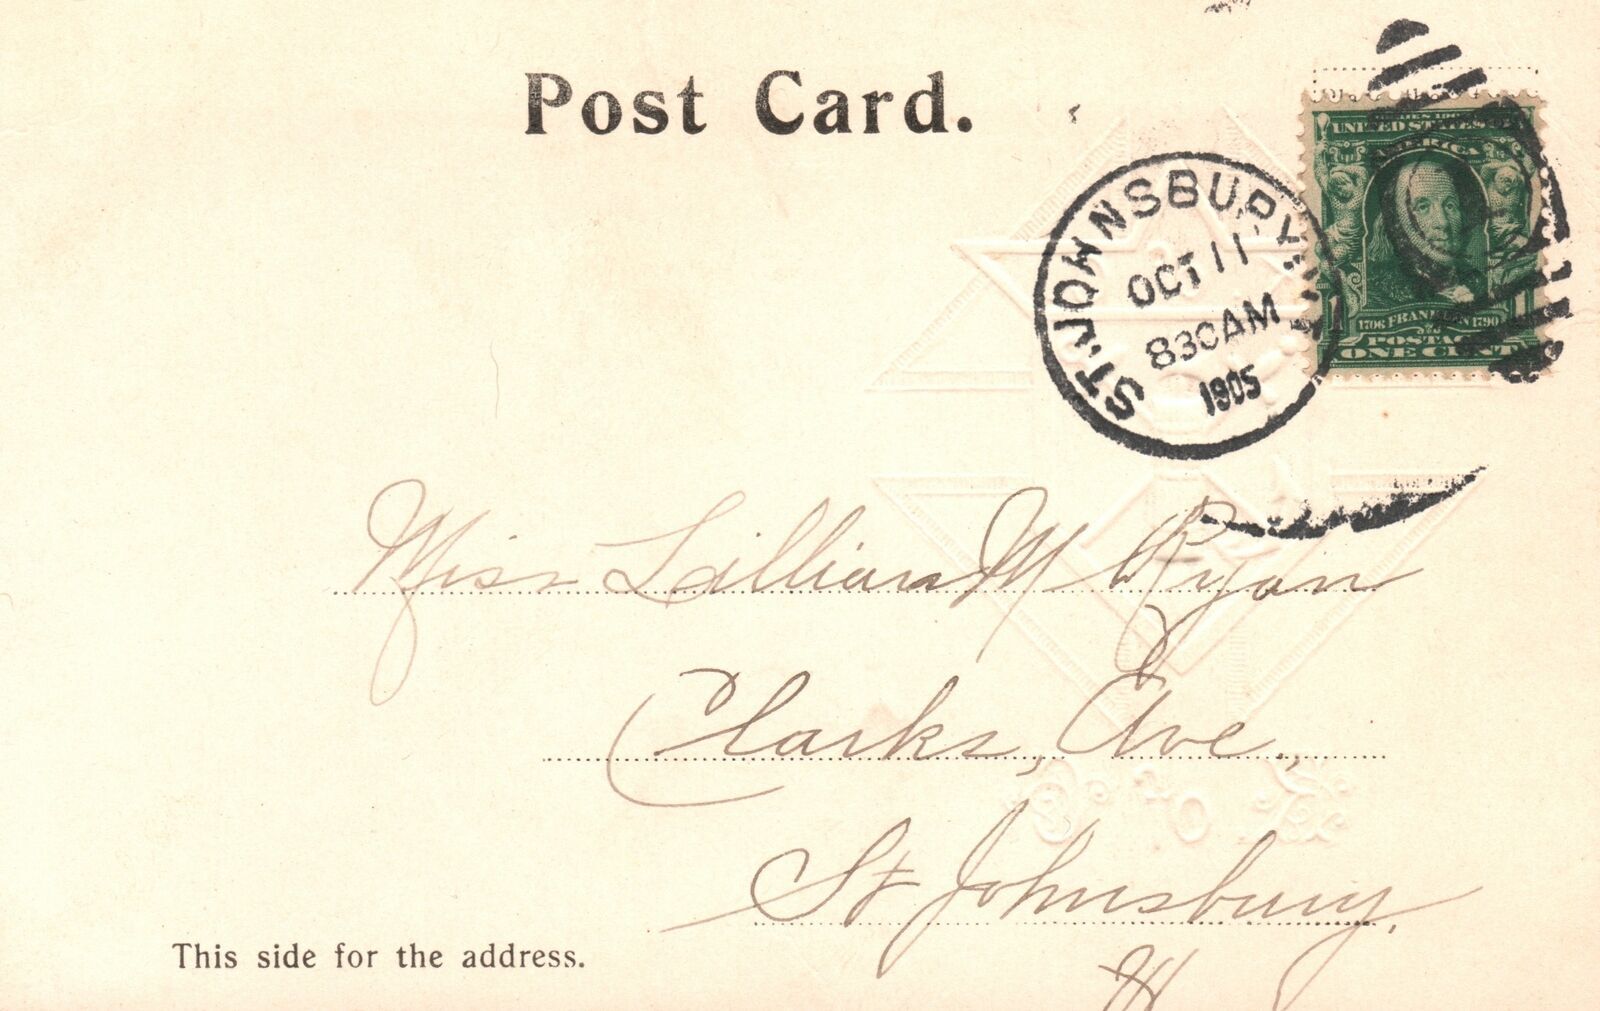 Post Card.
SERIES 1902
UNITED STATES OF
AMERICA
1706 FRANKLIN 1790
POSTAGE
1 ONE CENT 1
ST. JOHNSBURY,
OCT 11
830AM
1905
Miss Lillian M Ryan
Clarks, Ave.,
St Johnsbury,
This side for the address.